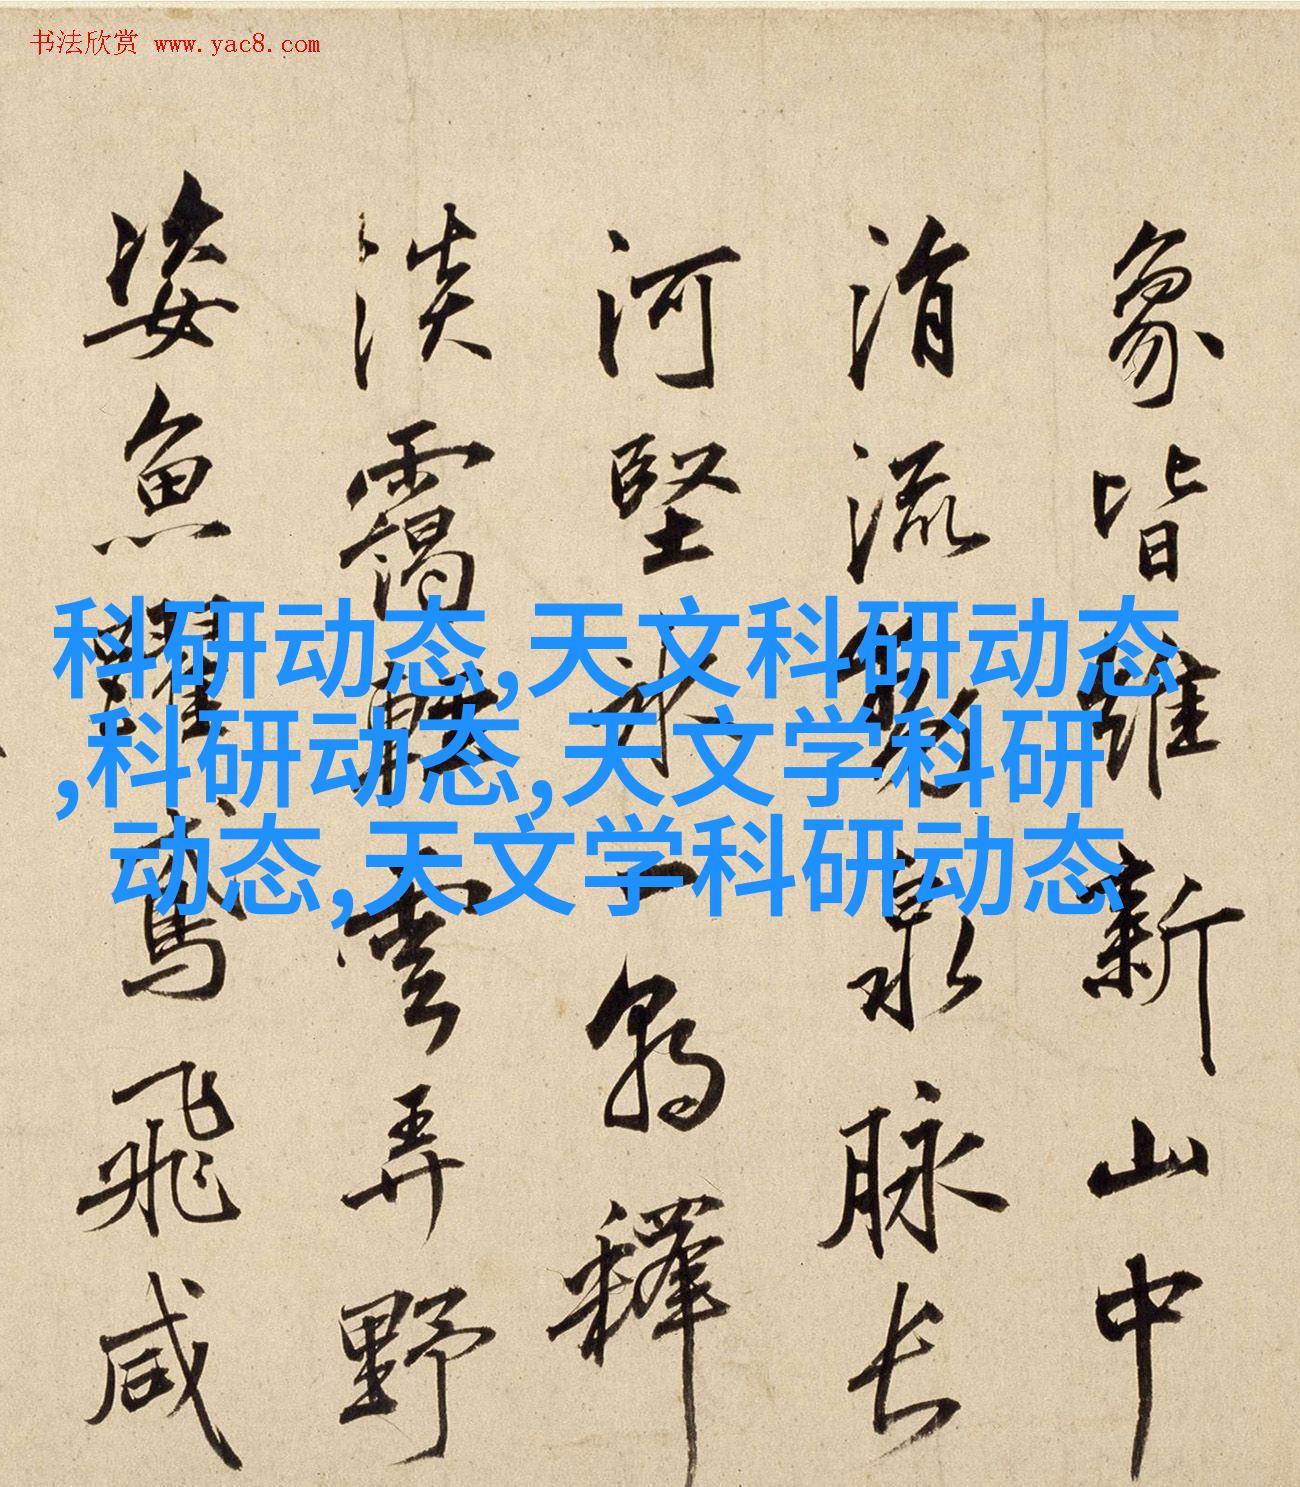 书法欣赏 www.yac8.com
象皆維新山中
涓流泉脉長
河堅冰一朝釋
淡靄雲弄野
姿魚躍鳶飛咸
科研动态,天文科研动态
,科研动态,天文学科研
动态,天文学科研动态